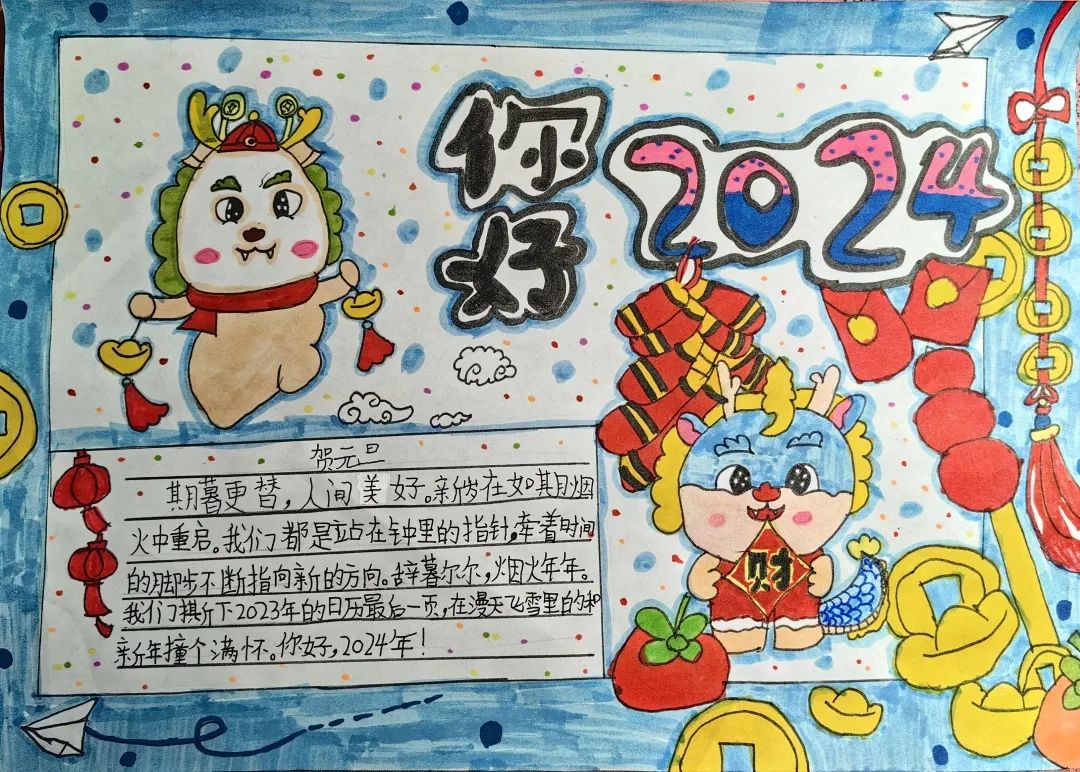 你好
2024
财
贺元旦
期暮更替，人间美好。新岁在如期烟
火中重启。我们都是站在钟里的指针，牵着时间
的脚步不断指向新的方向。辞暮尔尔，烟火年年。
我们撕下2023年的日历最后一页，在漫天飞雪里的和
新年撞个满怀。你好，2024年！